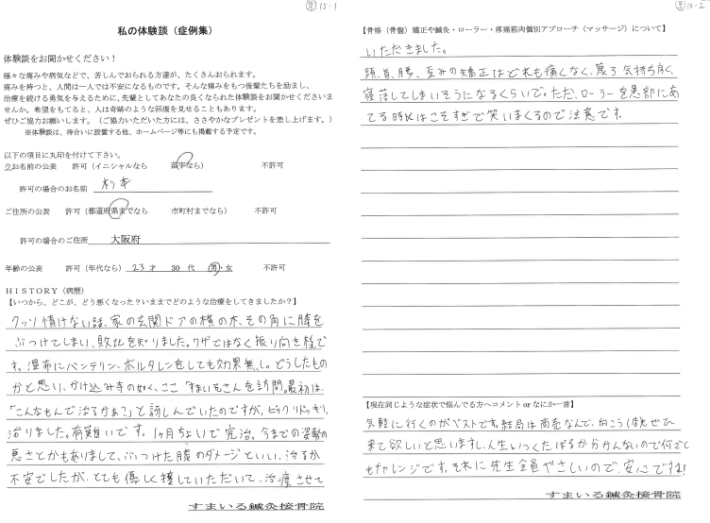 15-1
私の体験談（症例集）
体験談をお聞かせください！
様々な痛みや病気などで、苦しんでおられる方達が、たくさんおられます。
痛みを持つと、人間は一人では不安になるものです。そんな痛みをもつ後輩たちを励まし、
治療を続ける勇気を与えるために、先輩としてあなたの良くなられた体験談をお聞かせくださいま
せんか。希望をもてると、人は奇跡のような回復を見せることもあります。
ぜひご協力お願いします。（ご協力いただいた方には、ささやかなプレゼントを差し上げます。）
※体験談は、待合いに設置する他、ホームページ等にも掲載する予定です。
以下の項目に丸印を付けて下さい。
お名前の公表 許可（イニシャルなら 苗字なら） 不許可
許可の場合のお名前 杉本
ご住所の公表 許可（都道府県までなら 市町村までなら） 不許可
許可の場合のご住所 大阪府
年齢の公表 許可（年代なら） 23才 30代 男・女 不許可
ＨＩＳＴＯＲＹ（病歴）
【いつから、どこが、どう悪くなった？いままでどのような治療をしてきましたか？】
クッソ情けない話、家の玄関ドアの横の木、その角に膝を
ぶつけてしまい、敗北を知りました。ワザではなく振り向き様で
す。湿布にバンテリン、ボルタレンをしても効果無し。どうしたもの
かと思い、かけ込み寺の如く、ここ「すまいるさんを訪問。最初は、
「こんなもんで治るかぁ？」と訝しんでいたのですが、ビックリドッキリ、
治りました。有難いです。1ヶ月ちょいで完治。今までの姿勢の
悪さとかもありまして、ぶつけた膝のダメージといい、治るか
不安でしたが、とても優しく接していただいて、治療させて
すまいる鍼灸接骨院
15-2
【骨格（骨盤）矯正や鍼灸・ローラー・疼痛筋肉個別アプローチ（マッサージ）について】
いただきました。
頭、首、腰、歪みの矯正はどれも痛くなく、寧ろ気持ち良く、
寝落してしまいそうになるくらいで。ただ、ローラーを患部にあ
てる時はこそすぎて笑いまくるので注意です。
【現在同じような症状で悩んでる方へコメント or なにか一言】
気軽に行くのがベストです。結局は商売なんで、向こうは ぜひ
来て欲しいと思いますし、人生いつくたばるか分かんないので何ごと
もチャレンジです。それに先生全員やさしいので、安心ですね!
すまいる鍼灸接骨院